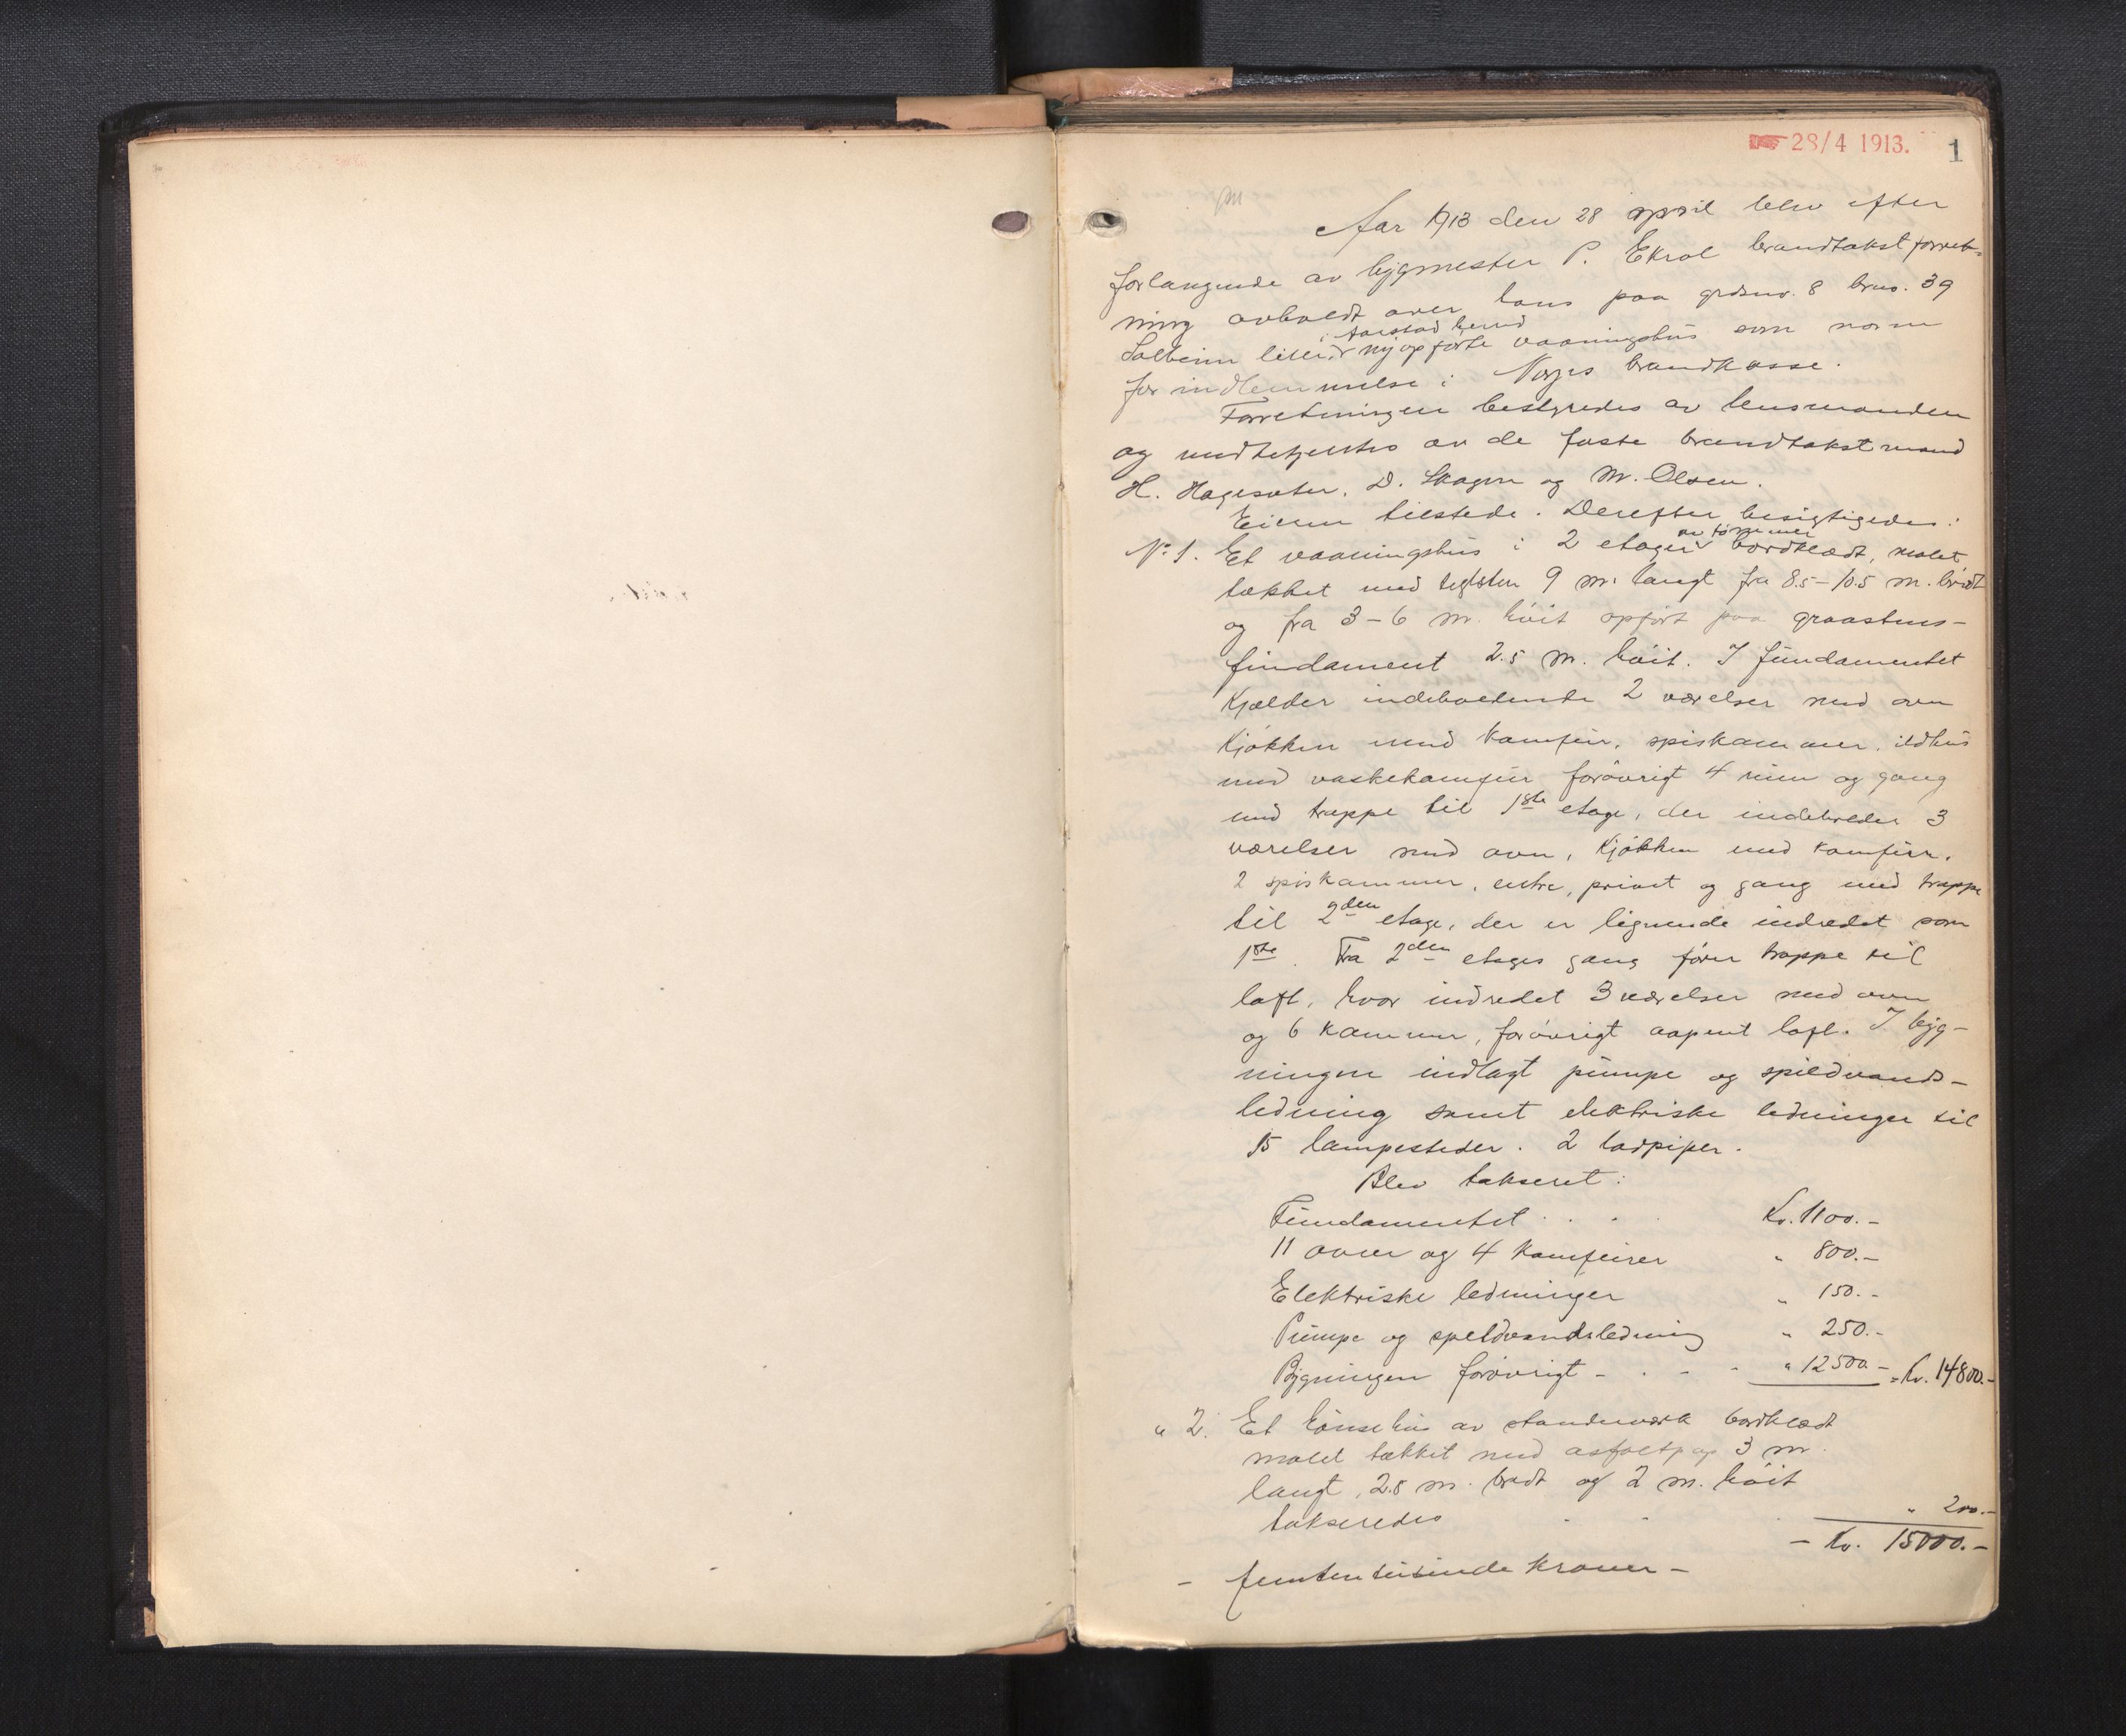 28/4 1913. 1
Aar 1913 den 28 april blev efter
forlangende av bygmester P. Ekrol brandtakstforret-
ning avholdt over hans paa grdsnr. 8 brno. 39
i Aarstad herred
Solheim liten nyopførte vaaningshus som
for indlemmelse i Norges brandkasse.
Forretningen bestyredes av lensmanden
og medbetjentes av de faste brandtakstmænd
H. Hagesæter, D. Skagen og M. Olsen.
Eieren tilstede. Derefter besigtigedes:
av tømmer
No 1. Et vaaningshus i 2 etager bordklædt, malet,
tækket med teglsten 9 m. langt fra 8.5 – 10.5 m. bredt
og fra 3 – 6 m. høit opført paa graastens-
fundament 2.5 m. høit. I fundamentet
kjælder indeholdende 2 værelser med ovn
kjøkken med komfur, spiskammer, ildhus
med vaskekomfur forøvrigt 4 rum og gang
med trappe til 1ste etage, der indeholder 3
værelser med ovn, kjøkken med komfur,
2 spiskammer, entre, privet og gang med trappe
til 2den etage, der er lignende indredet som
1ste. Fra 2den etages gang fører trappe til
loft, hvor indredet 3 værelser med ovn
og 6 kammer, forøvrigt aapent loft. I byg-
ningen indlagt pumpe og spildvands-
ledning samt elektriske ledninger til
15 lampesteder. 2 ladpiper.
Blev takseret:
Fundamentet . . . Kr. 1100.–
11 ovner og 4 komfurer " 800.–
Elektriske ledninger " 150.–
Pumpe og spildvandsledning " 250.–
Bygningen forøvrigt – . – - " 12500.– = Kr. 14800.–
" 2. Et hønsehus av standerverk bordklædt
malet tækket med asfaltpap 3 m.
langt, 2.5 m. bredt og 2 m. høit
takseredes . . . " 200.–
– Kr. 15000.–
– femten tusinde kroner –